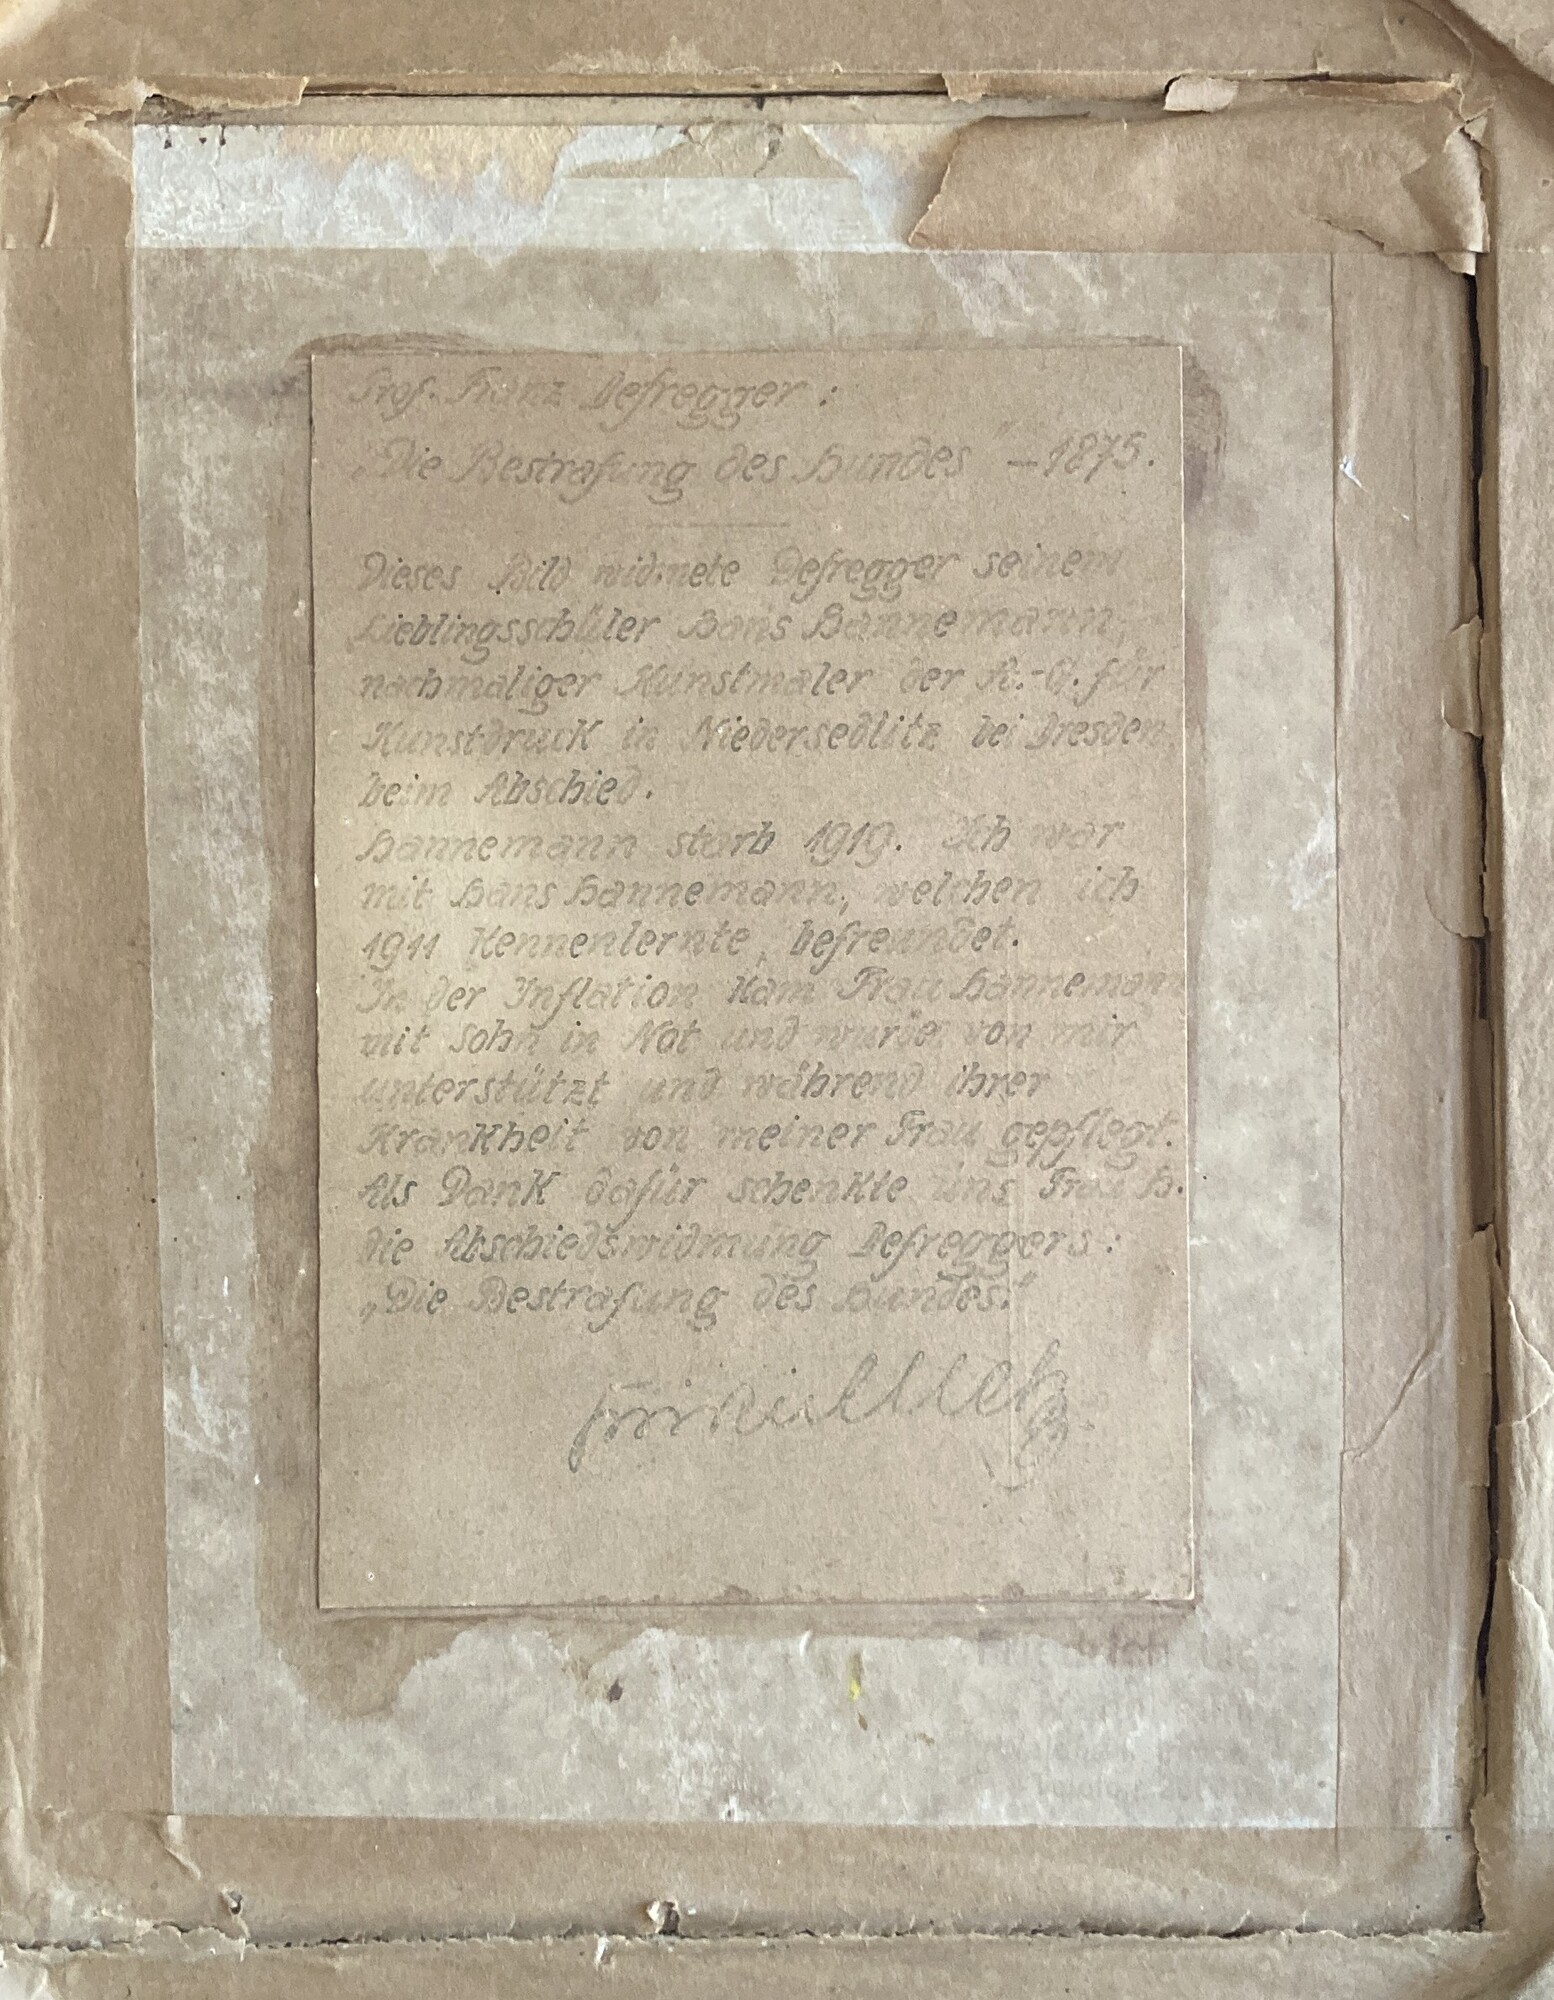 Prof. Franz Defregger :
„Die Bestrafung des Hundes" – 1875.
Dieses Bild widmete Defregger seinem
Lieblingsschüler Hans Hannemann
nachmaliger Kunstmaler der A.-G. für
Kunstdruck in Niedersedlitz bei Dresden
beim Abschied.
Hannemann starb 1919. Ich war
mit Hans Hannemann, welchen ich
1911 Kennenlernte, befreundet.
In der Inflation Kam Frau Hannemann
mit Sohn in Not und wurde von mir
unterstützt und während ihrer
Krankheit von meiner Frau gepflegt.
Als Dank dafür schenkte uns Frau H.
die Abschiedswidmung Defreggers :
„Die Bestrafung des Hundes."